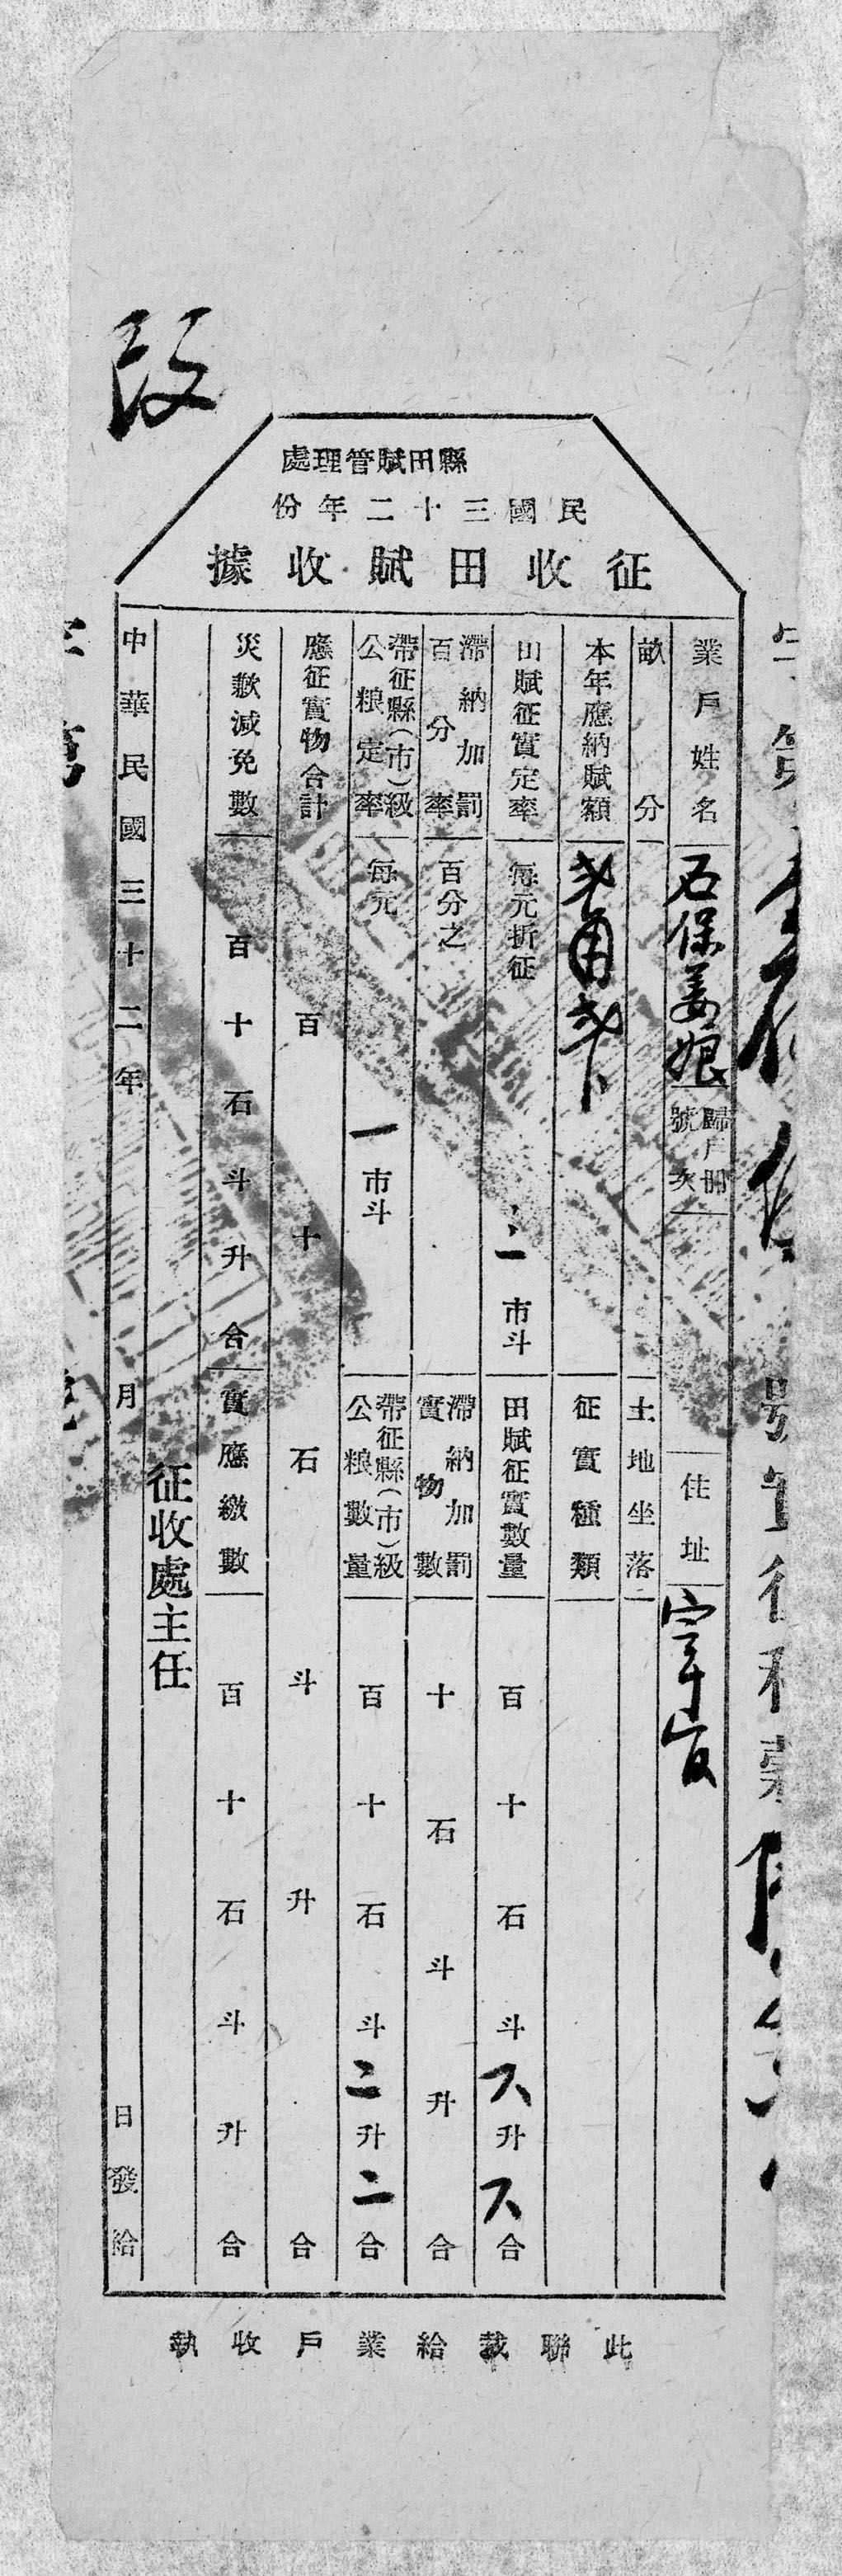 縣田賦管理處
民國三十二年份
征收田賦收據
業戶姓名 石保姜娘 歸戶冊號次 住址
畝分 土地坐落
本年應納賦額 弍角弍卜 征實種類
田賦征實定率 每元折征 三市斗 田賦征實數量 百十石斗六升六合
滯納加罰百分率 百分之 滯納加罰實物數 十石斗升合
帶征縣(市)級公粮定率 每元 一市斗 帶征縣(市)級公粮數量 百十石斗二升二合
應征實物合計 百十石斗升合
災歉減免數 百十石斗升合 實應繳數 百十石斗升合
征收處主任
中華民國三十二年 月 日發給
此聯裁給業戶收執